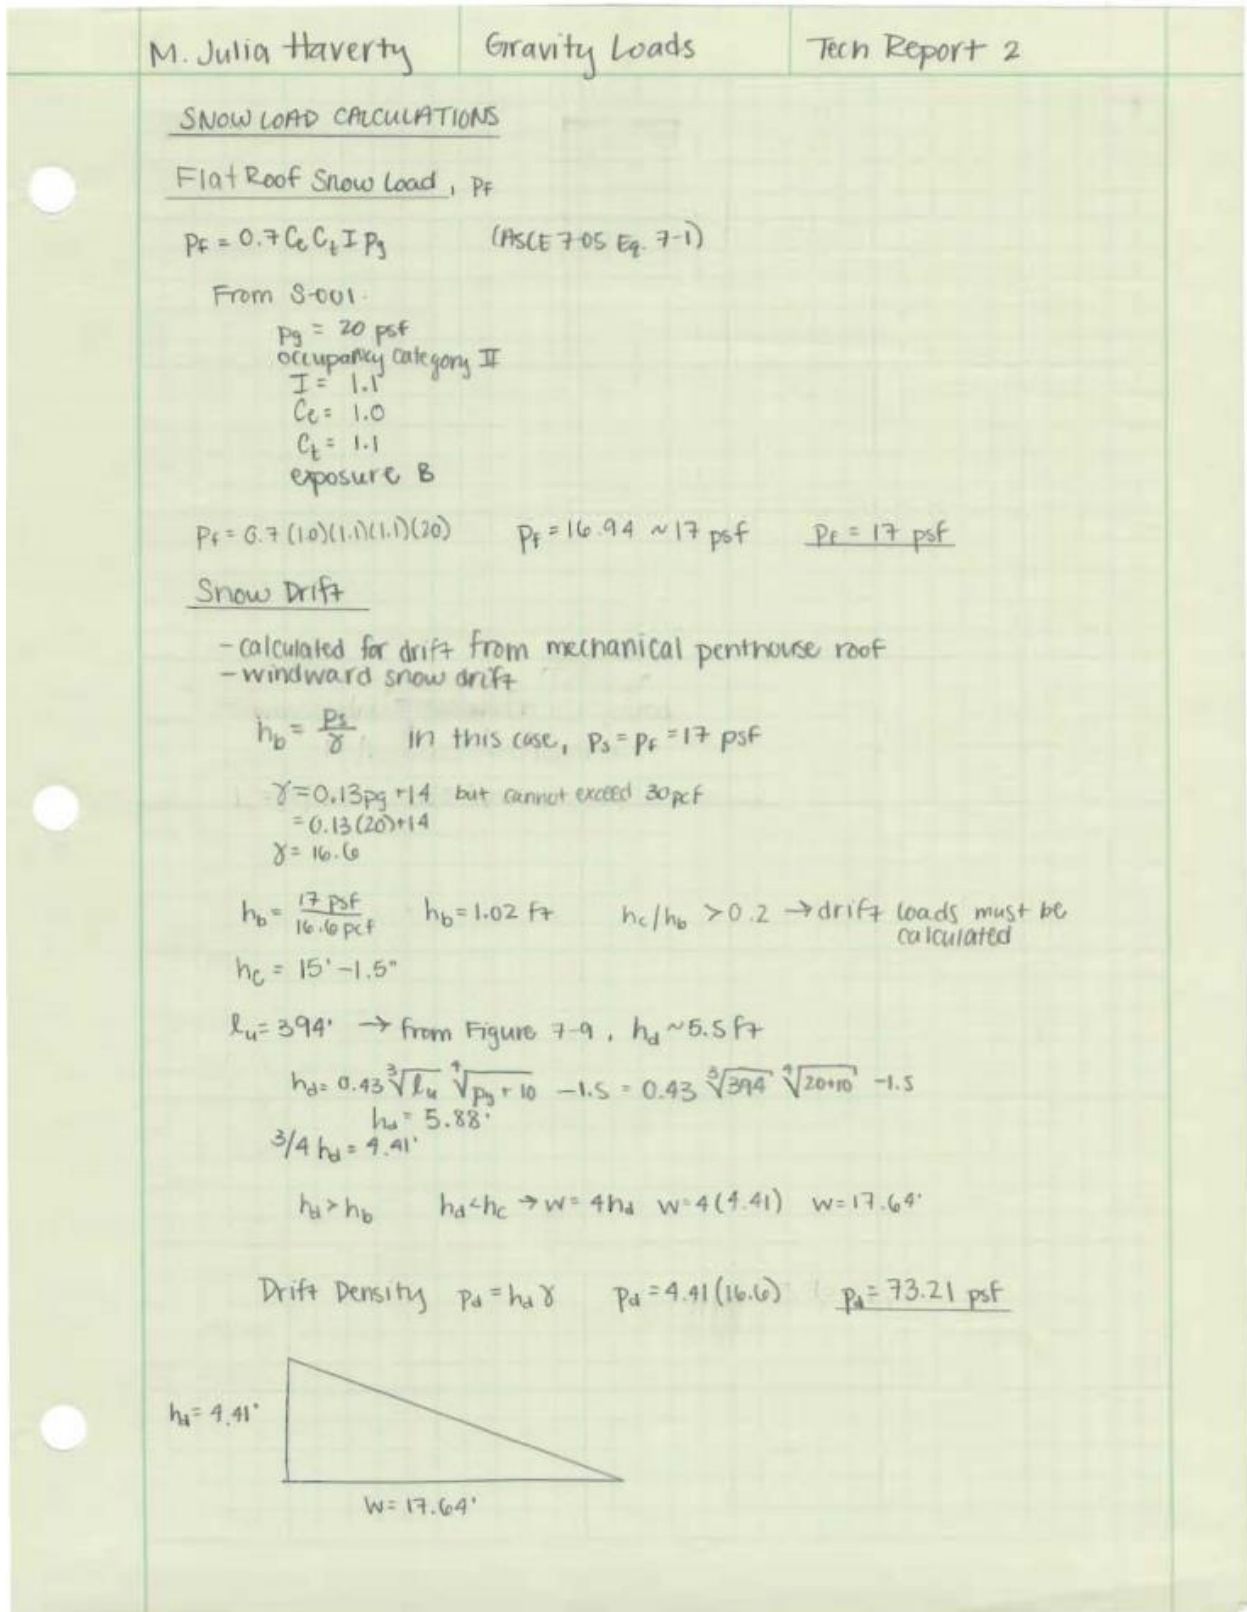 M. Julia Haverty Gravity Loads Tech Report 2
SNOW LOAD CALCULATIONS
Flat Roof Snow Load, Pf
Pf = 0.7 Ce Ct I Pg (ASCE 7-05 Eq. 7-1)
From S-001.
Pg = 20 psf
occupancy category II
I = 1.1
Ce = 1.0
Ct = 1.1
exposure B
Pf = 0.7 (1.0)(1.1)(1.1)(20) Pf = 16.94 ~ 17 psf Pf = 17 psf
Snow Drift
- calculated for drift from mechanical penthouse roof
- windward snow drift
hb = Ps/γ in this case, Ps = Pf = 17 psf
γ = 0.13pg + 14 but cannot exceed 30 pcf
= 0.13(20)+14
γ = 16.6
hb = 17 psf/16.6 pcf hb = 1.02 ft hc/hb > 0.2 → drift loads must be
calculated
hc = 15'-1.5"
lu = 394' → from Figure 7-9, hd ~ 5.5 ft
hd = 0.43 ∛lu ∜pg + 10 - 1.5 = 0.43 ∛394 ∜20+10 - 1.5
hd = 5.88'
3/4 hd = 4.41'
hd > hb hd < hc → w = 4hd w = 4(4.41) w = 17.64'
Drift Density Pd = hd γ Pd = 4.41(16.6) Pd = 73.21 psf
hd = 4.41'
w = 17.64'